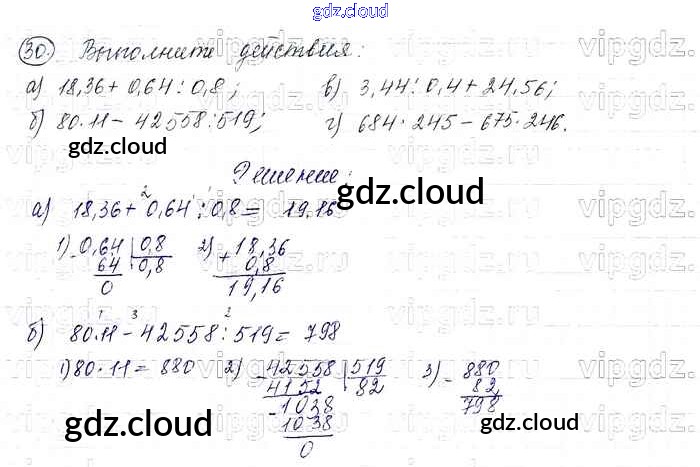 gdz.cloud
30. Выполните действия:
а) 18,36 + 0,64 : 0,8; в) 3,44 : 0,4 + 24,56;
б) 80·11 − 42558 : 519; г) 684·245 − 675·246.
gdz.cloud gdz.cloud
Решение:
gdz.cloud
2 1
а) 18,36 + 0,64 : 0,8 = 19,16
1) 0,64 | 0,8 2) 18,36
− 64 | 0,8 + 0,8
0 19,16
1 3 2
б) 80·11 − 42558 : 519 = 798
1) 80·11 = 880 2) 42558 | 519 3) − 880
− 4152 | 82 82
− 1038 798
1038
0
gdz.cloud gdz.cloud
vipgdz.